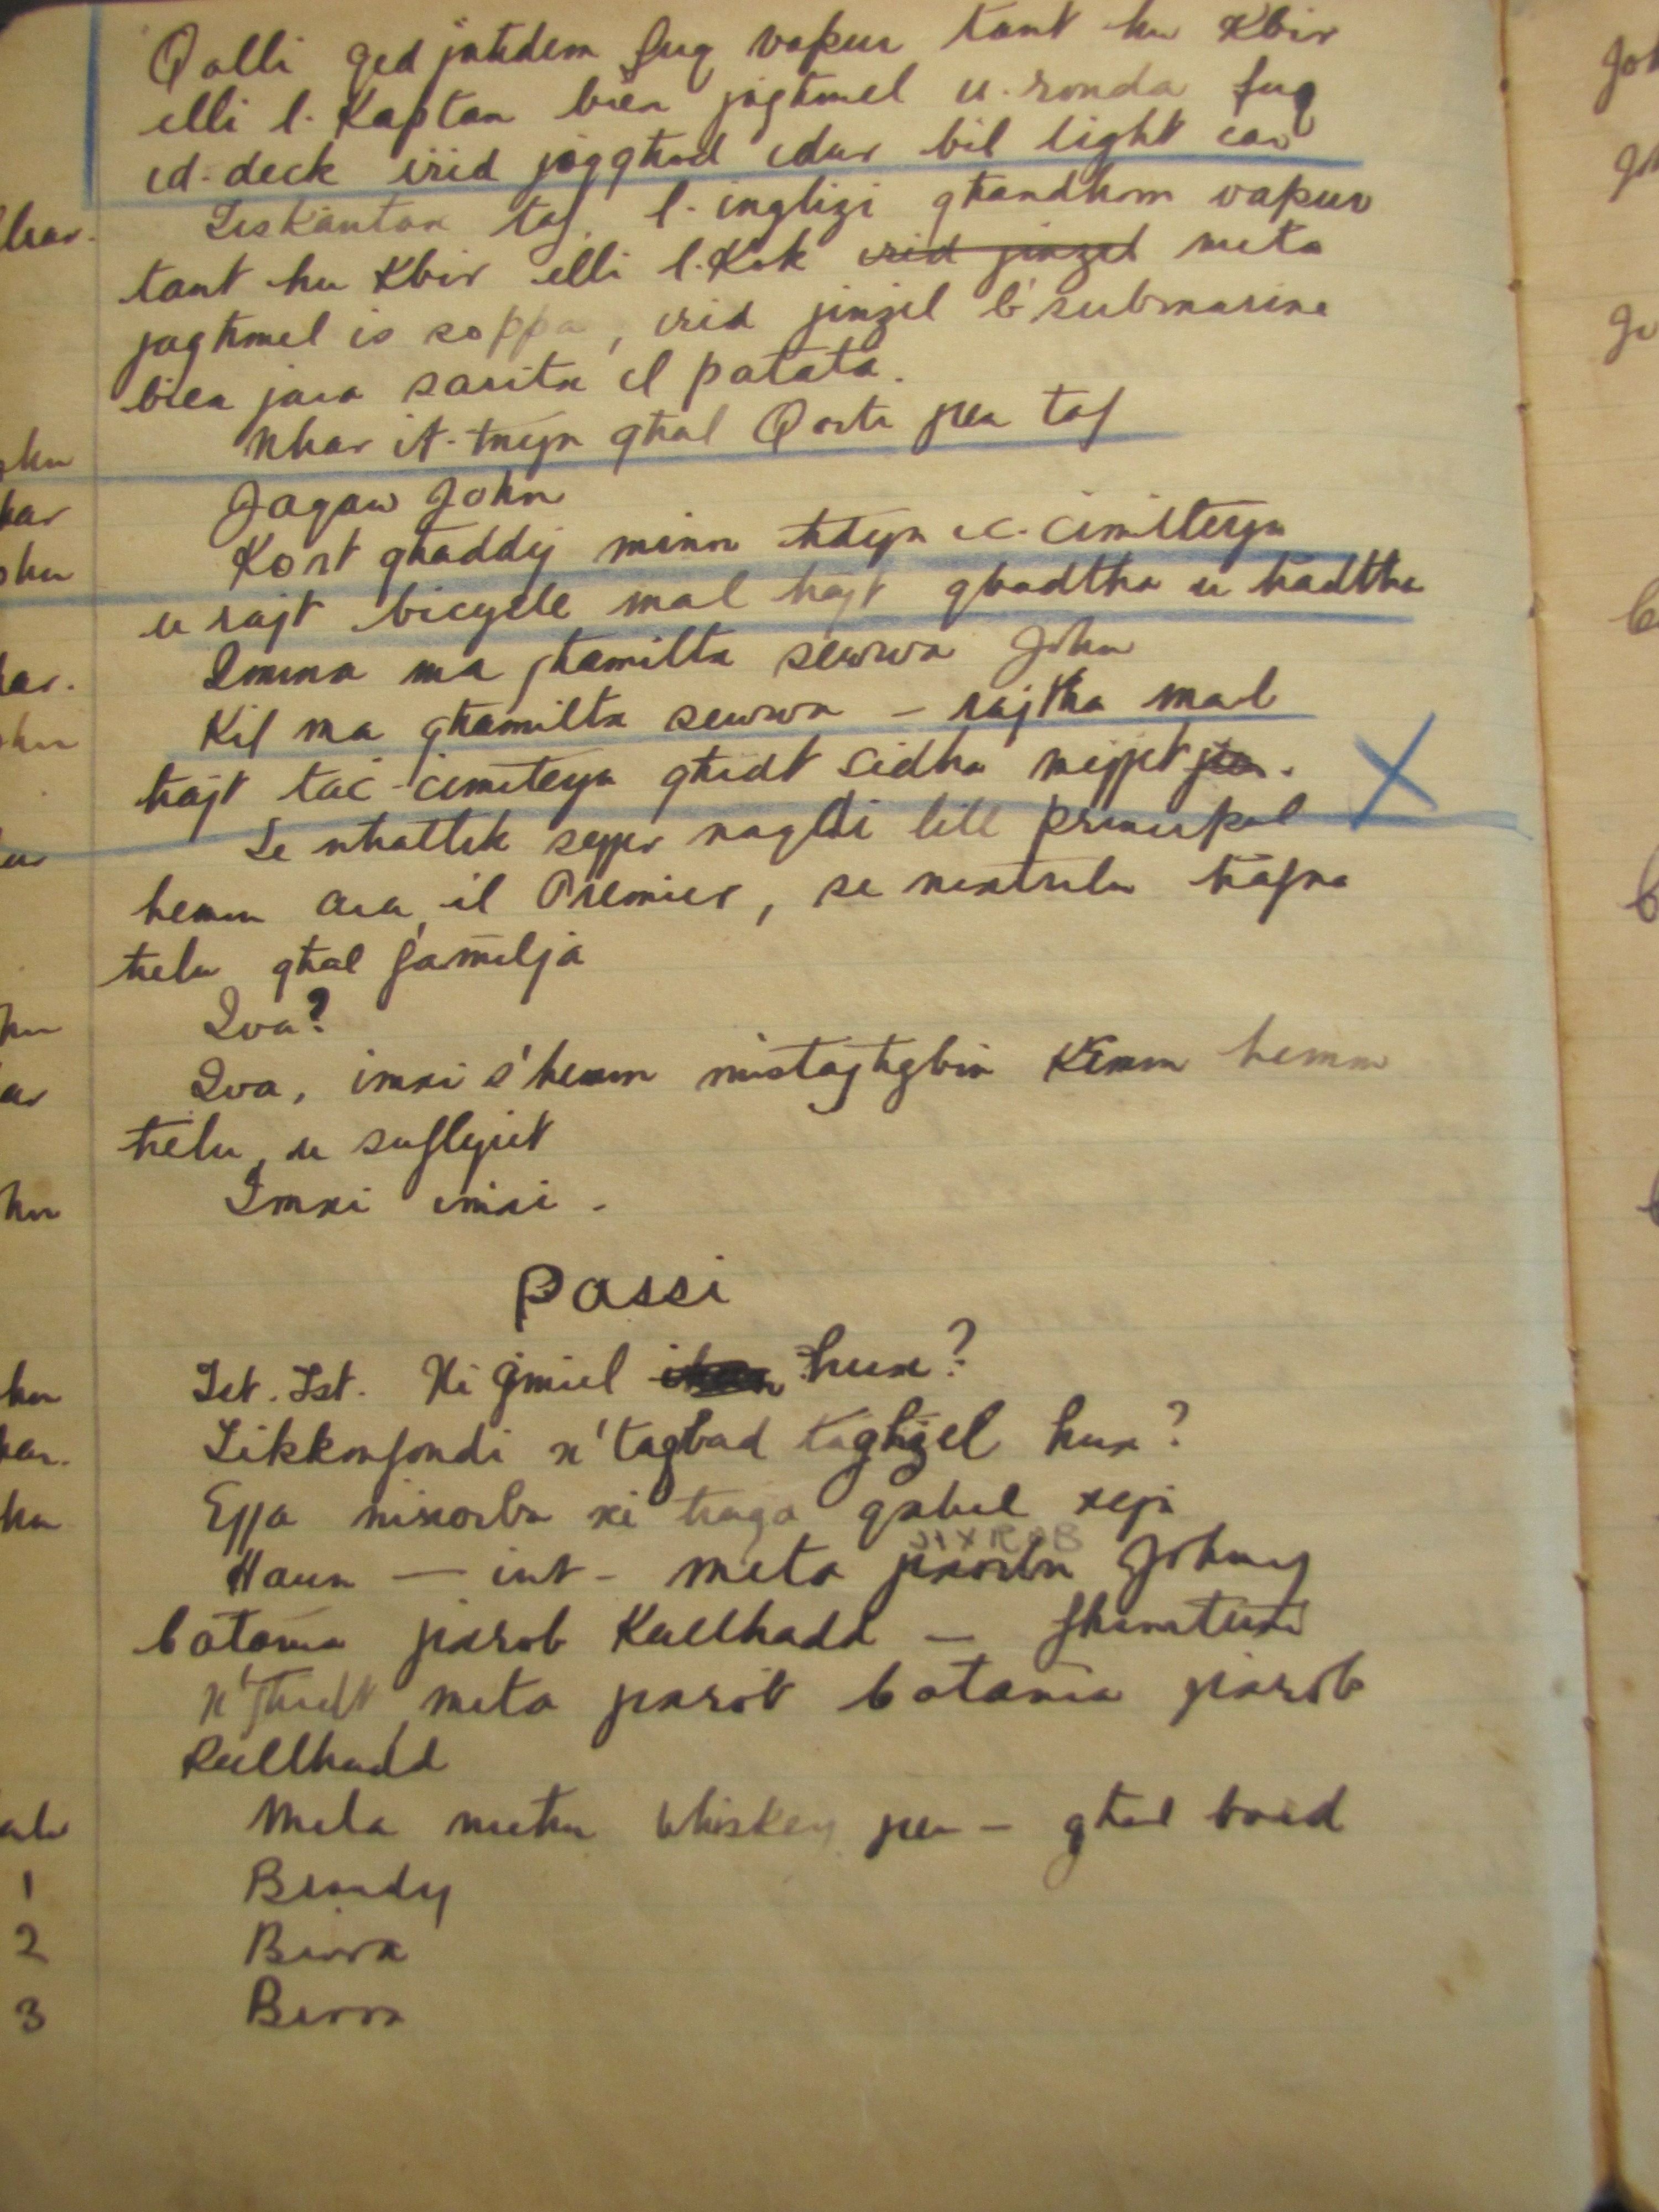 Qalli qed jahdem fuq vapur tant hu kbir
elli l. Kaptan biex jagħmel ir-ronda fuq
id-deck irid joqgħod idur bil light car
har. Liskantax taf. l-inglizi għandhom vapur
tant hu kbir elli l. Kok irid jinzel meta
jagħmel is soppa, irid jinzel b'submarine
biex jara saritx il patata.
hu Nhar it-tnejn għal Qorti pea taf
har Jaqaw John
hu Kont għaddej minn ħdejn iċ-ċimiterju
u rajt bicycle mal ħajt qbadtha u ħadtha
har. Imma ma għamiltx sewwa John
hu Kif ma għamiltx sewwa – rajtha mal
ħajt taċ-ċimiterju għidt sidha mejjet pea. X
Se nħallik sejjer nagħdi lill principal
hemm ara il Premier, se nixtrilu ħafna
ħelu għal familja
hu Iva?
ar Iva, imxi s'hemm mistagħġbin kemm hemm
ħelu, u suflejiet
hu Imxi imxi -
Passi
hu Ist. Ist. Xi ġmiel hux?
har. Tikkonfondi x'taqbad tagħżel hux?
hu Ejja nixorbu xi ħaġa qabel xejn
JIXROB
Haun — int - meta jixorbu Johnny
botama jixrob kullhadd — fhimtuni
x'għidt meta jixrob botama jixrob
kullhadd
Mela nieħu whiskey pea - għal bard
1 Brandy
2 Birra
3 Birra